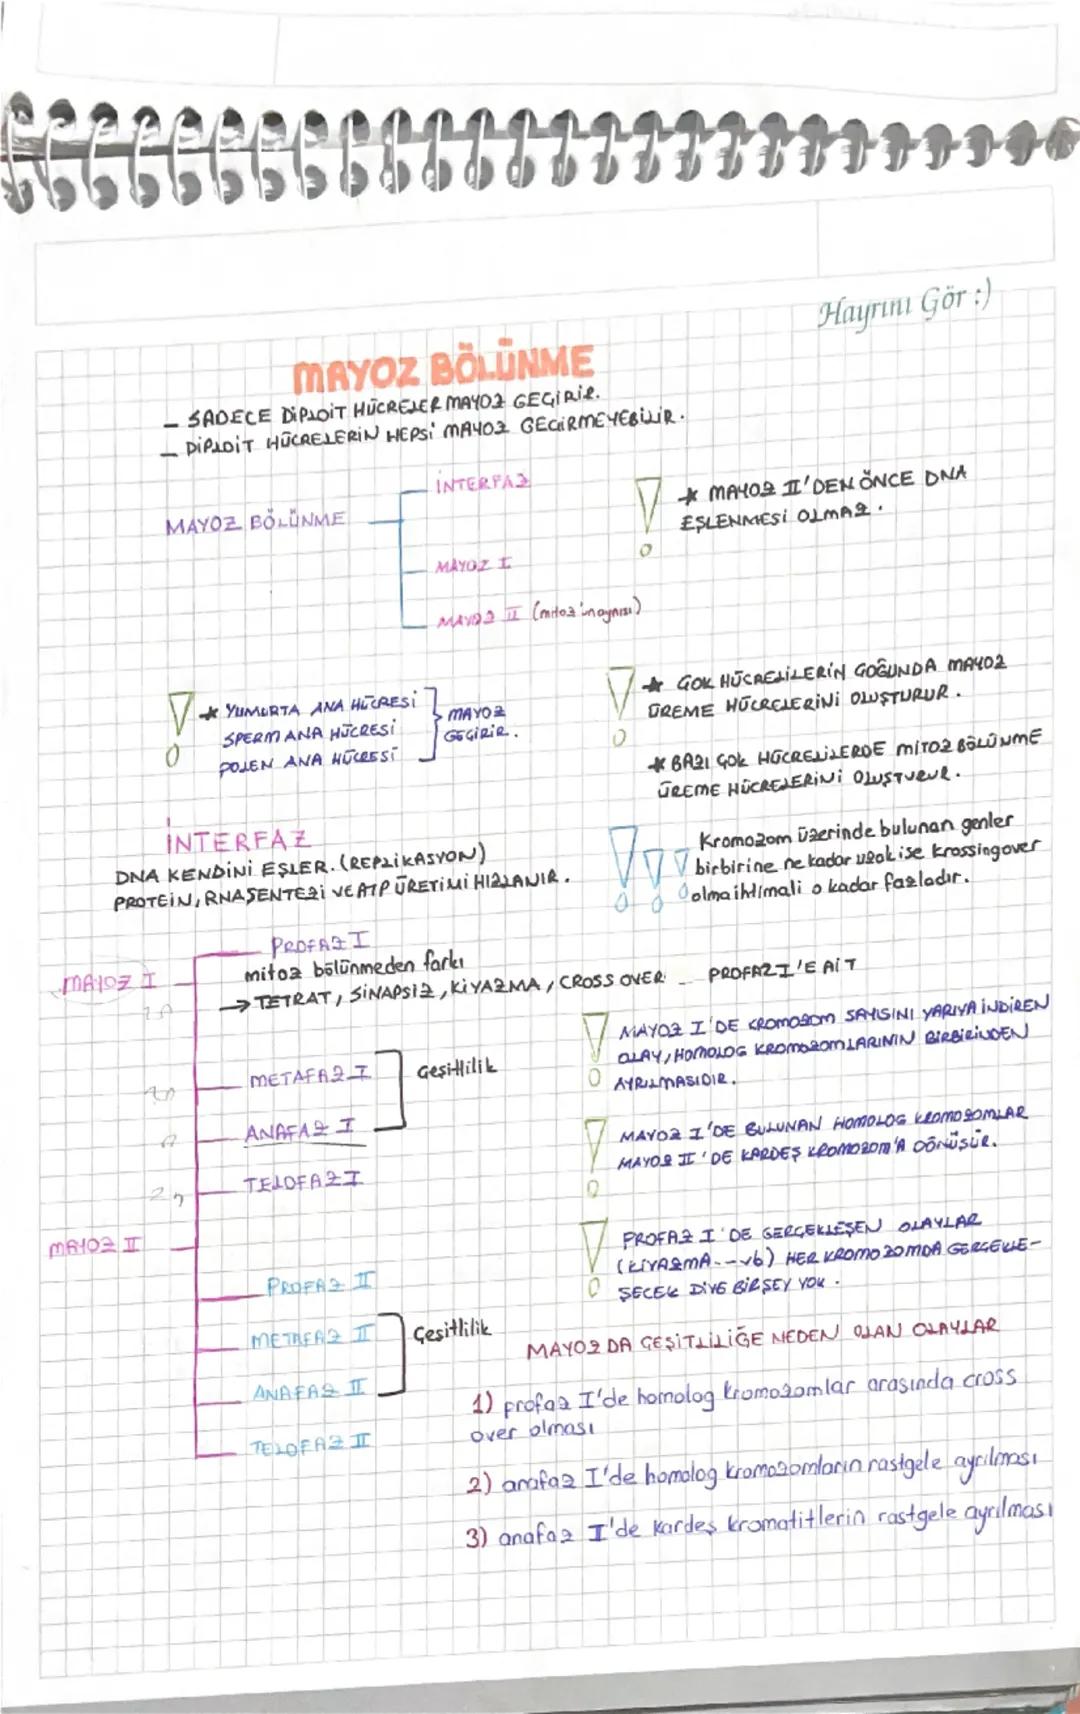 Hayrını Gör :)
MAYOZ BÖLÜNME
- SADECE DİPLOİT HÜCRELER MAYOZ GEÇİRİR.
- DİPLOİT HÜCRELERİN HEPSİ MAYOZ GEÇİRMEYEBİLİR.
MAYOZ BÖLÜNME
İNTERFAZ
MAYOZ I
MAYOZ II (mitoz'un aynısı)
* MAYOZ II'DEN ÖNCE DNA
EŞLENMESİ OLMAZ.
* YUMURTA ANA HÜCRESİ
SPERM ANA HÜCRESİ
POLEN ANA HÜCRESİ
MAYOZ
GEÇİRİR.
* ÇOK HÜCRELİLERİN ÇOĞUNDA MAYOZ
ÜREME HÜCRELERİNİ OLUŞTURUR.
* BAZI ÇOK HÜCRELİLERDE MİTOZ BÖLÜNME
ÜREME HÜCRELERİNİ OLUŞTURUR.
İNTERFAZ
DNA KENDİNİ EŞLER. (REPLİKASYON)
PROTEİN, RNA SENTEZİ VE ATP ÜRETİMİ HIZLANIR.
Kromozom üzerinde bulunan genler
birbirine ne kadar uzak ise krossing over
olma ihtimali o kadar fazladır.
MAYOZ I
PROFAZ I
mitoz bölünmeden farkı
→ TETRAT, SİNAPSİZ, KİYAZMA, CROSS OVER - PROFAZ I'E AİT
2n
METAFAZ I
ANAFAZ I
Çeşitlilik
TELOFAZ I
2n
MAYOZ I'DE KROMOZOM SAYISINI YARIYA İNDİREN
OLAY, HOMOLOG KROMOZOMLARININ BİRBİRİNDEN
AYRILMASIDIR.
MAYOZ I'DE BULUNAN HOMOLOG KROMOZOMLAR
MAYOZ II'DE KARDEŞ KROMOZOM'A DÖNÜŞÜR.
MAYOZ II
PROFAZ II
METAFAZ II
ANAFAZ II
Çeşitlilik
TELOFAZ II
PROFAZ I'DE GERÇEKLEŞEN OLAYLAR
(KİYAZMA--vb) HER KROMOZOMDA GERÇEKLE-
ŞECEK DİYE BİRŞEY YOK.
MAYOZ DA ÇEŞİTLİLİĞE NEDEN OLAN OLAYLAR
1) profaz I'de homolog kromozomlar arasında cross
over olması
2) anafaz I'de homolog kromozomların rastgele ayrılması
3) anafaz I'de kardeş kromatitlerin rastgele ayrılması